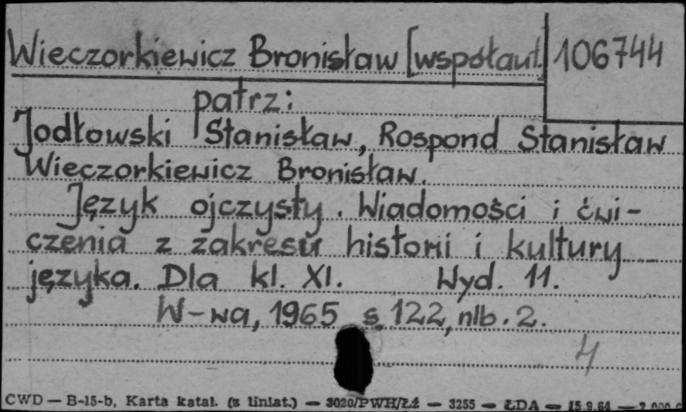 Wieczorkiewicz Bronisław [współaut. 106744
patrz:
Jodłowski Stanisław, Rospond Stanisław
Wieczorkiewicz Bronisław.
Język ojczysty. Wiadomości i ćwi-
czenia z zakresu historii i kultury
języka. Dla kl. XI. Wyd. 11.
W-wa, 1965 s. 122, nlb. 2.
4
CWD — B-15-b, Karta katal. (z liniat.) — 3020/PWH/Łź — 3255 — ŁDA — 15.9.64 —